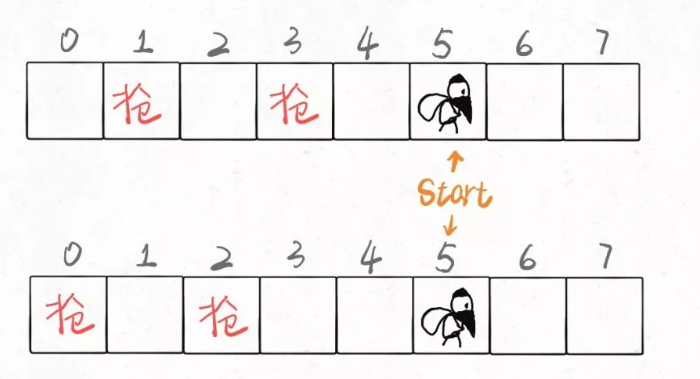 0 1 2 3 4 5 6 7
抢 抢
Start
0 1 2 3 4 5 6 7
抢 抢